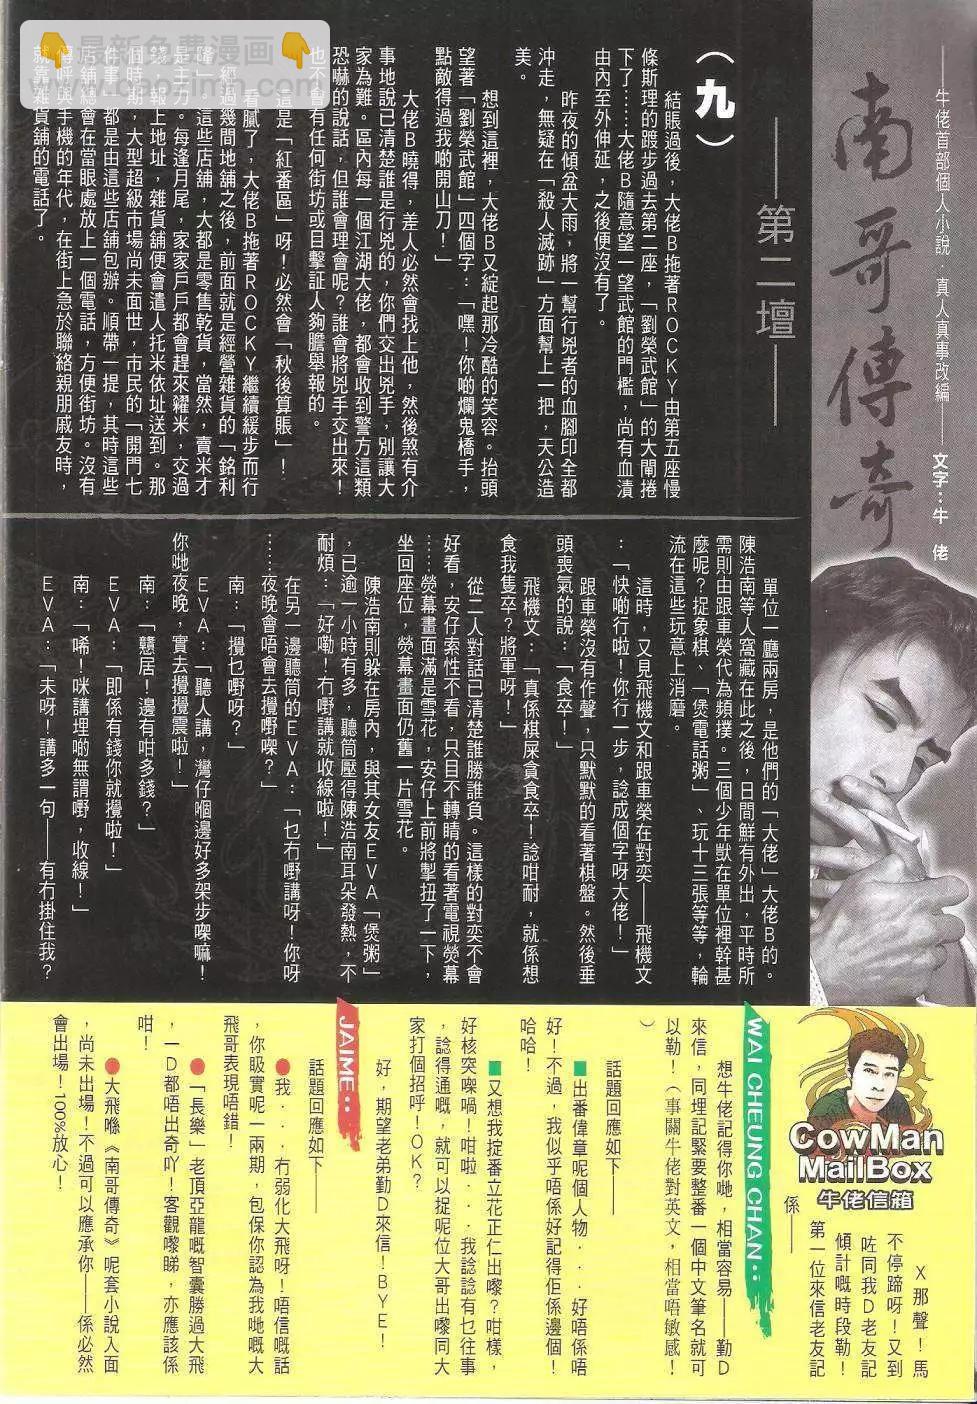 ——牛佬首部個人小說．真人真事改編——文字：牛 佬
南哥傳奇
——第二壇——
（九）
結賬過後，大佬B拖著ROCKY由第五座慢
條斯理的踱步過去第二座，「劉榮武館」的大閘捲
下了……大佬B隨意望一望武館的門檻，尚有血漬
由內至外伸延，之後便沒有了。
昨夜的傾盆大雨，將一幫行兇者的血腳印全都
沖走，無疑在「殺人滅跡」方面幫上一把，天公造
美。
想到這裡，大佬B又綻起那冷酷的笑容。抬頭
望著「劉榮武館」四個字：「嘿！你啲爛鬼橋手，
點敵得過我啲開山刀！」
大佬B曉得，差人必然會找上他，然後煞有介
事地說已清楚誰是行兇的，你們交出兇手，別讓大
家為難。區內每一個江湖大佬，都會收到警方這類
恐嚇的說話，但誰會理會呢？誰會將兇手交出來！
也不會有任何街坊或目擊証人夠膽舉報的。
這是「紅番區」呀！必然會「秋後算賬」！
看膩了，大佬B拖著ROCKY繼續緩步而行
，經過幾間地舖之後，前面就是經營雜貨的「銘利
隆」。這些店舖，大都是零售乾貨，當然，賣米才
是主力。每逢月尾，家家戶戶都會趕來糴米，交過
錢，報上地址，雜貨舖便會遣人托米依址送到。那
個時期，大型超級市場尚未面世，市民的「開門七
件事」都是由這些店舖包辦。順帶一提，其時這些
店舖總會在當眼處放上一個電話，方便街坊。沒有
傳呼與手機的年代，在街上急於聯絡親朋戚友時，
就靠雜貨舖的電話了。
單位一廳兩房，是他們的「大佬」大佬B的。
陳浩南等人窩藏在此之後，日間鮮有外出，平時所
需則由跟車榮代為頻撲。三個少年獃在單位裡幹甚
麼呢？捉象棋、「煲電話粥」、玩十三張等等，輪
流在這些玩意上消磨。
這時，又見飛機文和跟車榮在對奕——飛機文
：「快啲行啦！你行一步，諗成個字呀大佬！」
跟車榮沒有作聲，只默默的看著棋盤。然後垂
頭喪氣的說：「食卒！」
飛機文：「真係棋屎貪食卒！諗咁耐，就係想
食我隻卒？將軍呀！」
從二人對話已清楚誰勝誰負。這樣的對奕不會
好看，安仔索性不看，只目不轉睛的看著電視熒幕
……熒幕畫面滿是雪花，安仔上前將掣扭了一下，
坐回座位，熒幕畫面仍舊一片雪花。
陳浩南則躲在房內，與其女友EVA「煲粥」
，已逾一小時有多，聽筒壓得陳浩南耳朵發熱，不
耐煩：「好嘞！冇嘢講就收線啦！」
在另一邊聽筒的EVA：「乜冇嘢講呀！你呀
……夜晚會唔會去攪嘢㗎？」
南：「攪乜嘢呀？」
EVA：「聽人講，灣仔嗰邊好多架步㗎嘛！
你哋夜晚，實去攪攪震啦！」
南：「戇居！邊有咁多錢？」
EVA：「即係有錢你就攪啦！」
南：「唏！咪講埋啲無謂嘢，收線！」
EVA：「未呀！講多一句——有冇掛住我？
CowMan
MailBox
牛佬信箱
X那聲！馬
不停蹄呀！又到
咗同我D老友記
傾計嘅時段勒！
第一位來信老友記
係——
WAI CHEUNG CHAN：
想牛佬記得你哋，相當容易——勤D
來信，同埋記緊要整番一個中文筆名就可
以勒！（事關牛佬對英文，相當唔敏感！
）
話題回應如下——
■出番偉章呢個人物．．．好唔係唔
好！不過，我似乎唔係好記得佢係邊個！
哈哈！
■又想我掟番立花正仁出嚟？咁樣，
好核突㗎喎！咁啦．．．我諗諗有乜往事
，諗得通嘅，就可以捉呢位大哥出嚟同大
家打個招呼！OK？
好，期望老弟勤D來信！BYE！
JAIME：
話題回應如下——
●我．．．冇弱化大飛呀！唔信嘅話
，你眅實呢一兩期，包保你認為我哋嘅大
飛哥表現唔錯！
●「長樂」老頂亞龍嘅智囊勝過大飛
，一D都唔出奇吖！客觀嚟睇，亦應該係
咁！
●大飛喺《南哥傳奇》呢套小說入面
，尚未出場！不過可以應承你——係必然
會出場！100%放心！